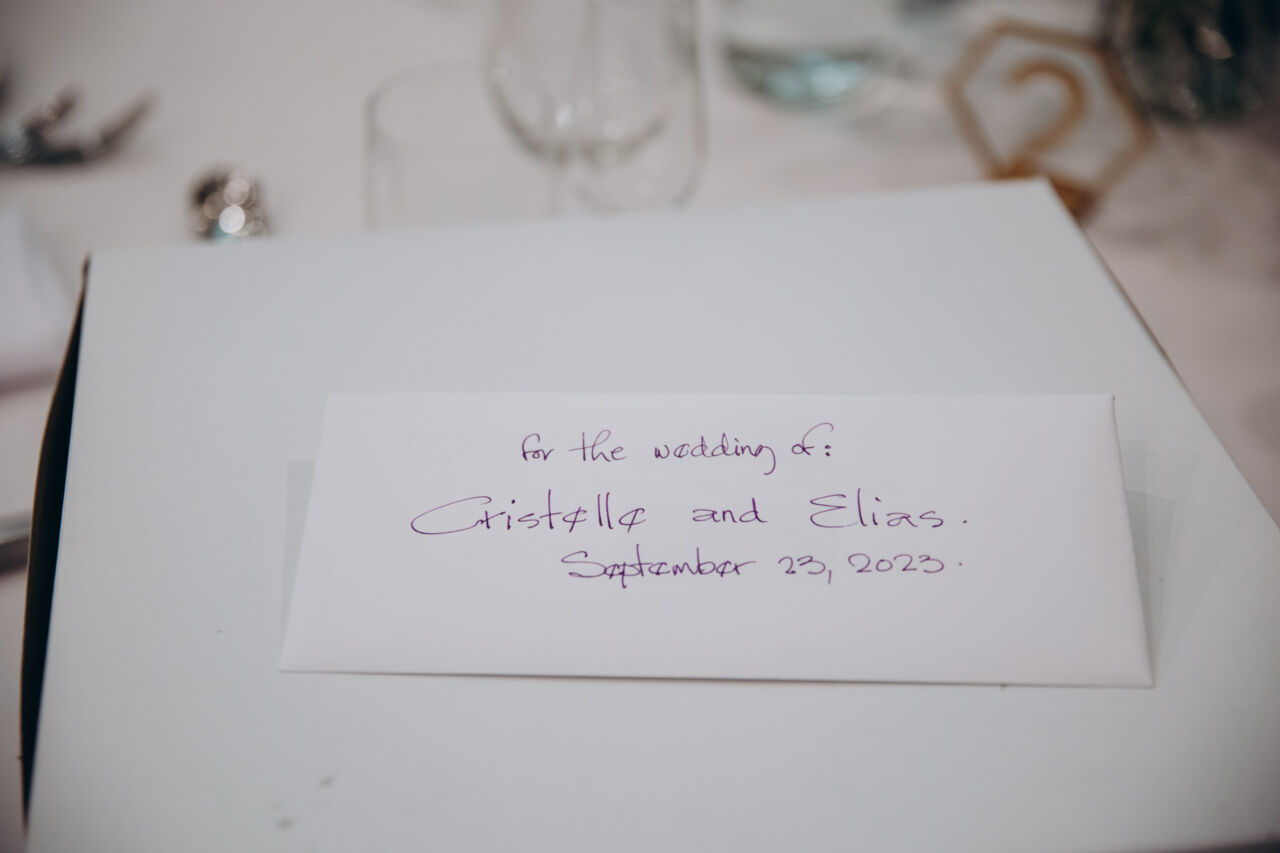 2
for the wedding of:
Cristelle and Elias.
September 23, 2023.